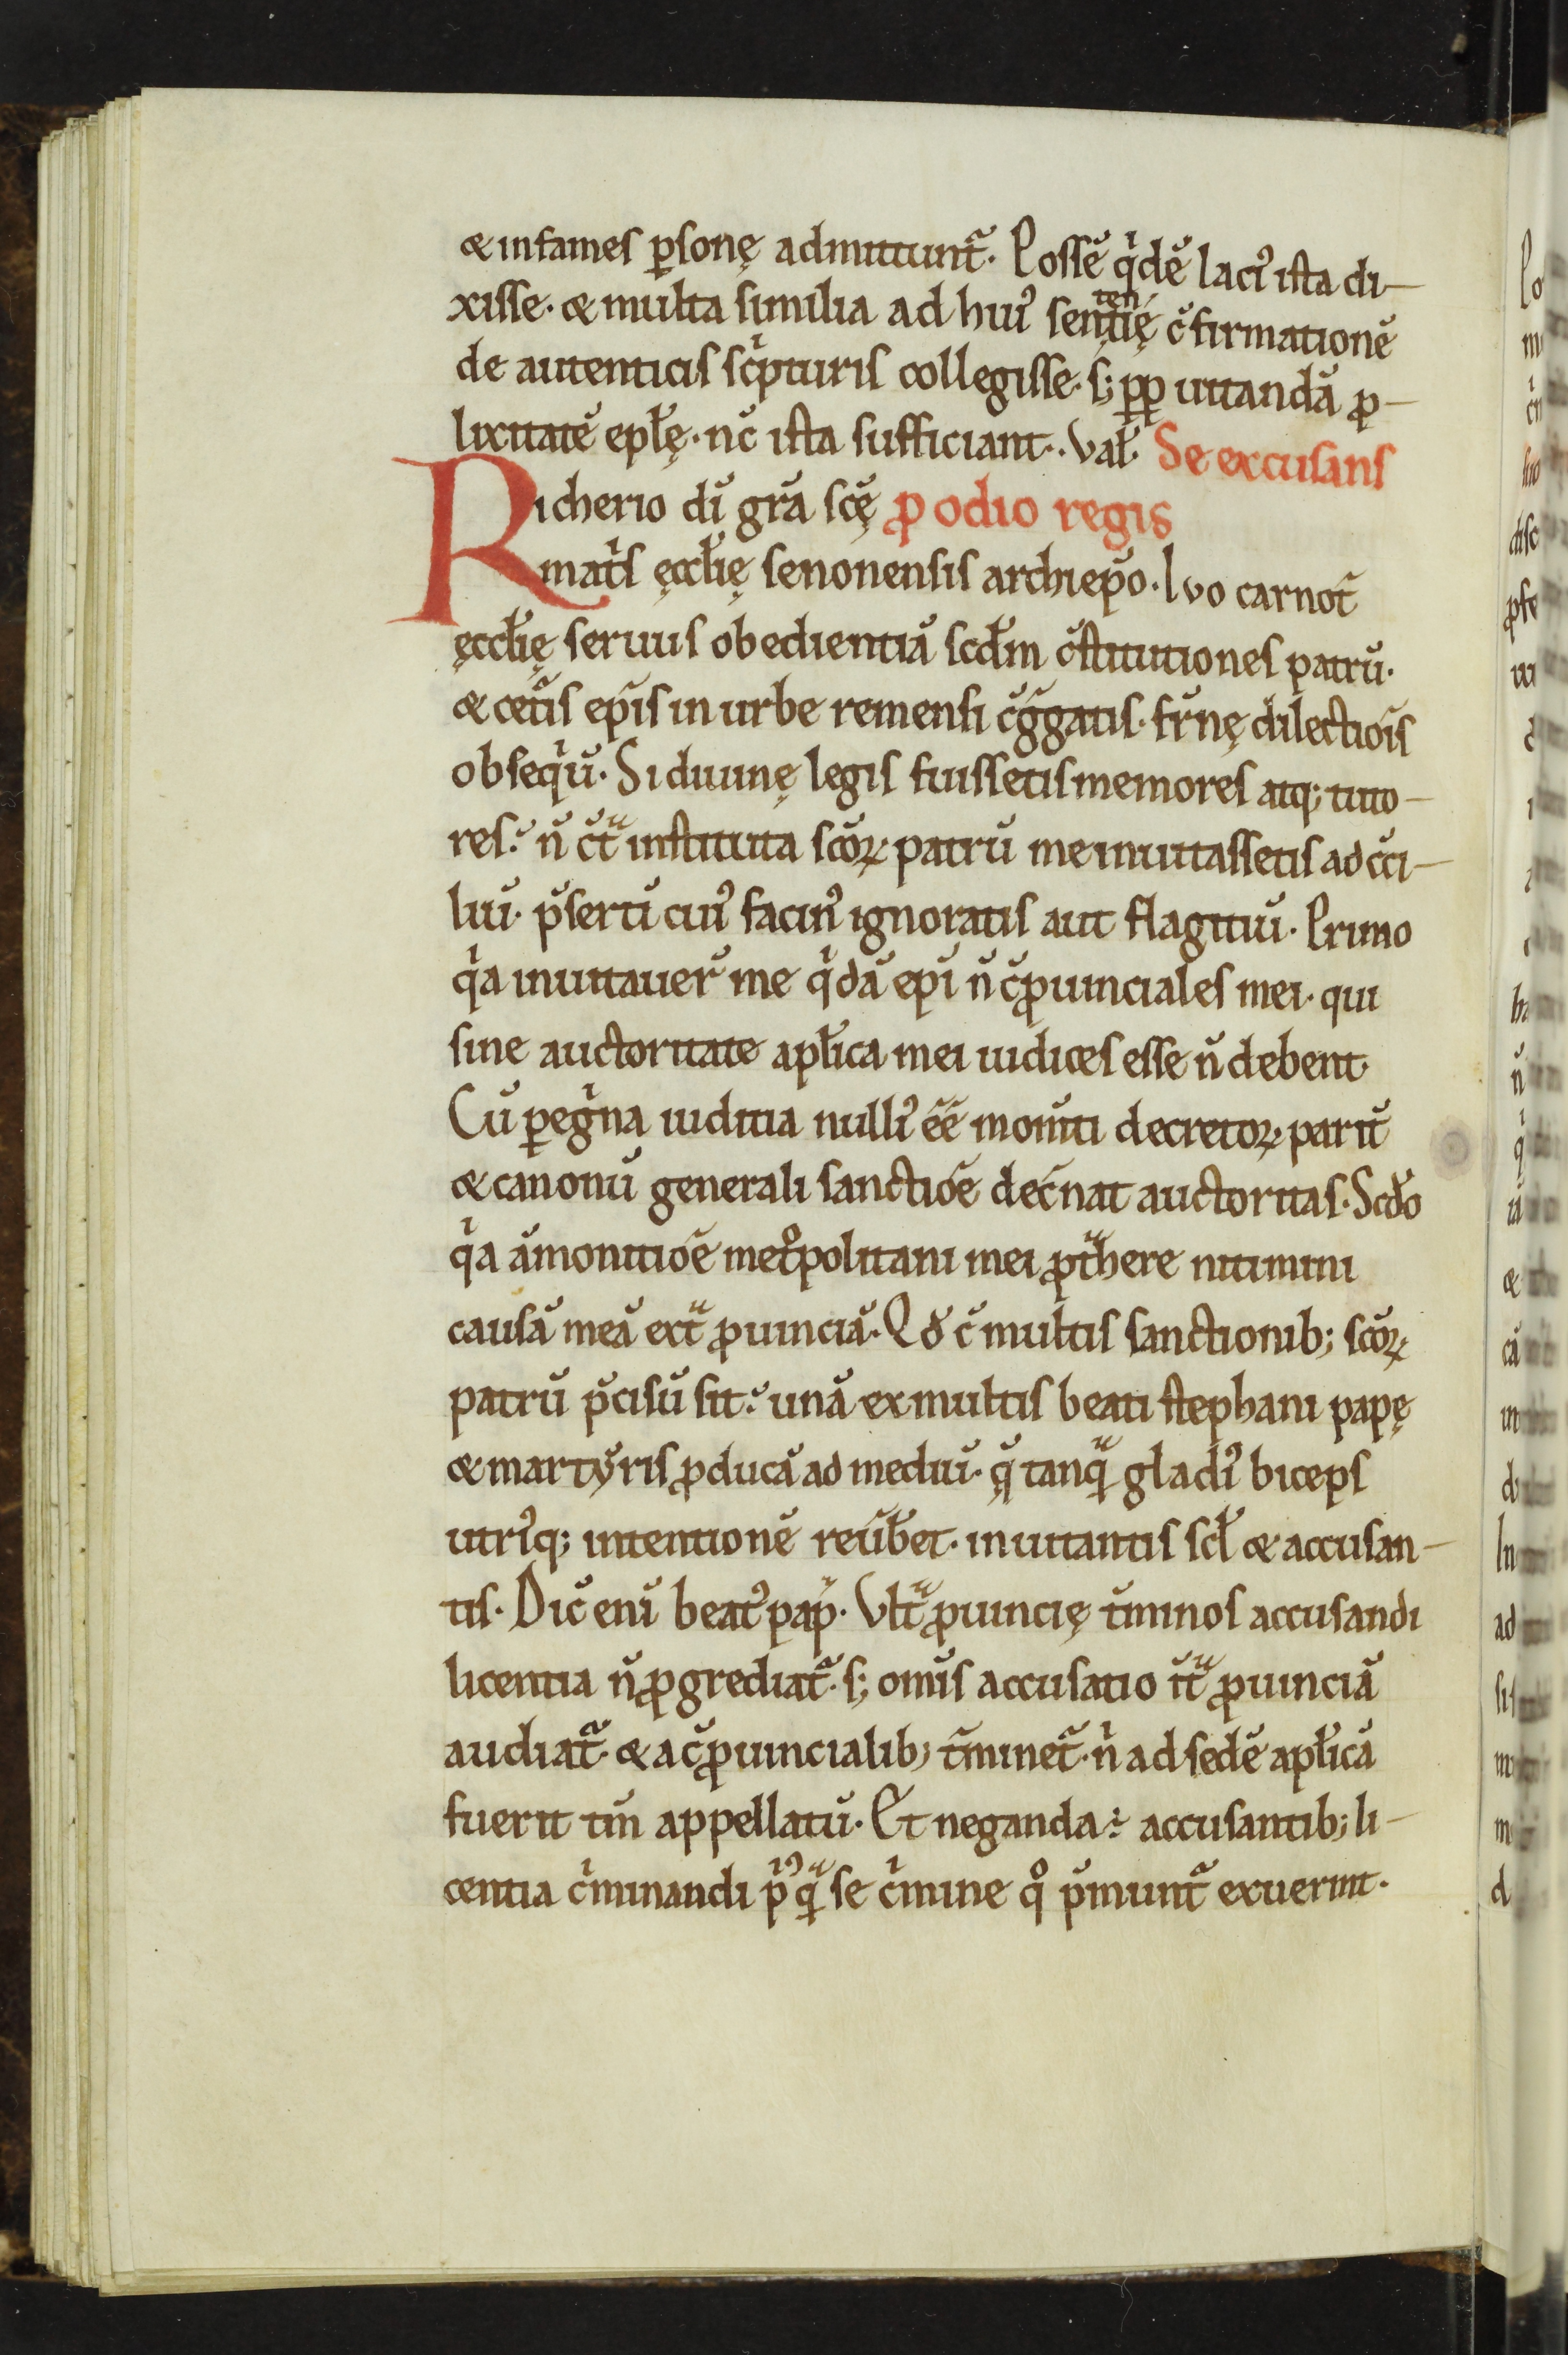 & infames ꝑsonę admittunt᷑. Possē q̇dē laci᷒ ista di-
xisse. & multa similia ad hui᷒ sentenꞇię c̄firmationē
de autenticis sc̍pturis collegisse. s; ꝓꝑ uitandā ꝓ-
lixitatē epłę. nc̄ ista sufficiant. Vał. Se excusans
Richerio dī grā scę̄ ꝓ odio regis
mat̍s ęccłię senonensis archiep̄o. Ivo carnot̄
ęccłię seruus obedientiā scđm c̄stitutiones patrū.
& cet̄is ep̄is in urbe remensi c̄ḡgatis. fr̄nę dilectiōis
obseq̍ū. Si diuinę legis fuissetis memores atq; tuto-
res. n̄ c̄tᷓ instituta scōꝝ patrū me inuitassetis ad cc̄i-
liū. p̄sertī cui᷒ facin᷒ ignoratis aut flagitiū. Primo
q̍a inuitauer̄ me q̍dā ep̄i n̄ c̄ꝓuinciales mei. qui
sine auctoritate apłica mei iudices esse n̄ debent.
Cū ꝑeg̍na iuditia nulli᷒ ēē momti decretoꝝ parit̄
& canonū generali sanctiōe dec̄nat auctoritas. Scđo
q̍a āmonitiōe met°politani mei ꝓtᷓhere nitimini
causā meā extᷓ ꝓuinciā. Qđ c̄ multis sanctionib; scōꝝ
patrū p̄cisū sit. unā ex multis beati stephani papę
& martyris ꝓducā ad mediū. q̨̄ tanqᷓ gladi᷒ biceps
utri᷒q; intentionē reūbet. inuitantis scł & accusan-
tis. Dic̄ enī beat᷒ papᷓ. Vltᷓ ꝓuincię t̄minos accusandi
licentia n̄ ꝓgrediat᷑. s; omīs accusatio īt̄ᷓ ꝓuinciā
audiat᷑. & a c̄ꝓuincialib; t̄minet᷑. n̍ ad sedē apłicā
fuerit tm̄ appellatū. Et neganda ÷ accusantib; li-
centia c̍minandi p̍᷒qᷓ se c̍mine q° p̄munt᷑ exuerint.